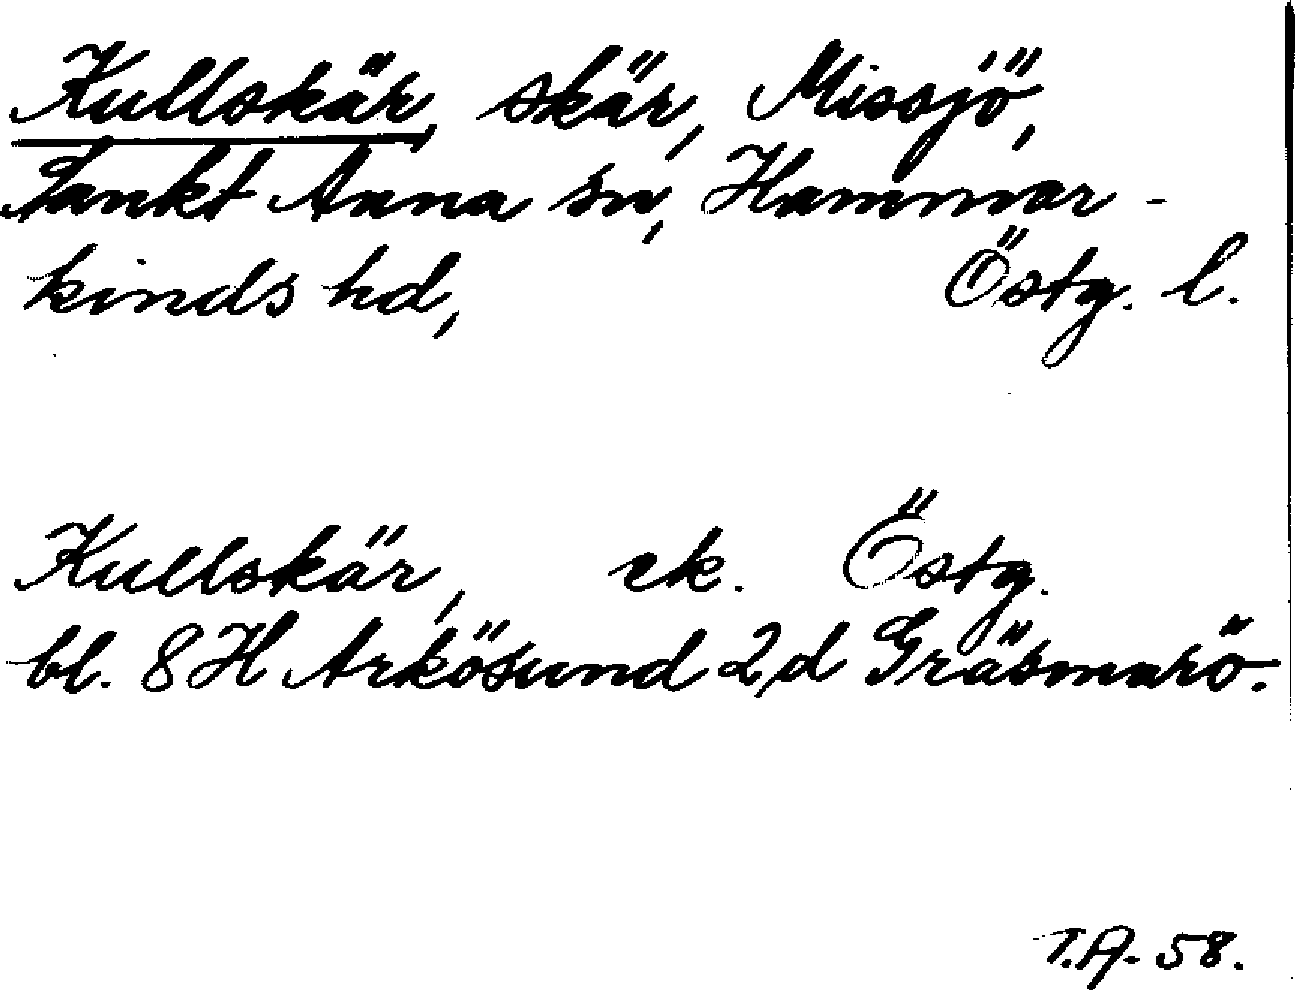 Kullskär, skär, Missjö,
Sankt Anna sn, Hammar-
kinds hd, Östg. l.
Kullskär, ek. Östg.
bl. 8H Arkösund 2d Gräsmarö.
T.A. 58.